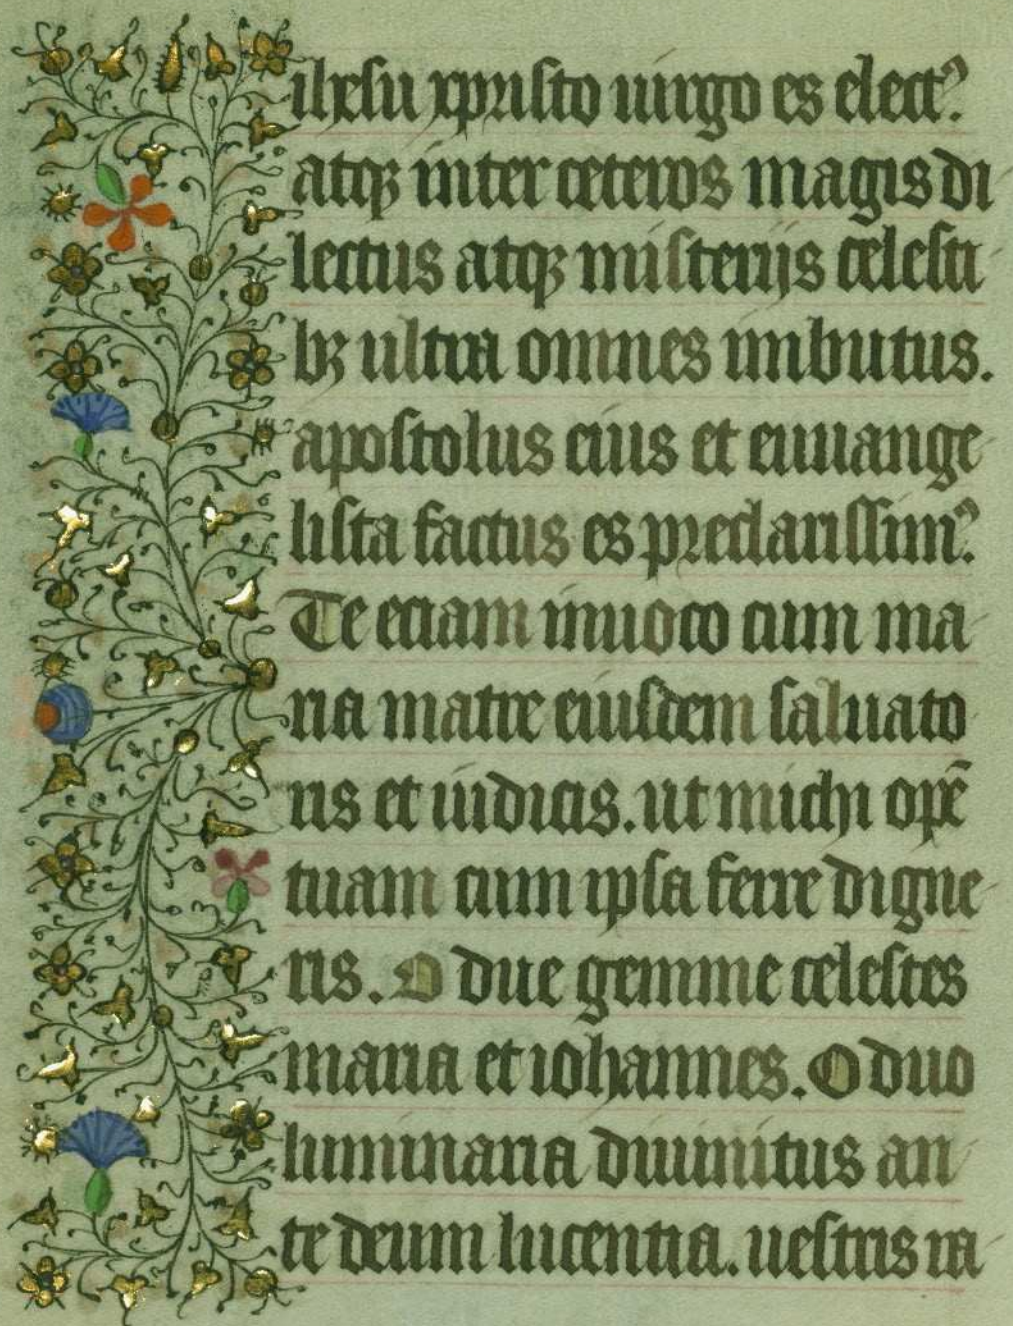 ihesu xpristo uirgo es elect⁹
atqꝫ inter ceteros magis di
lectus atqꝫ misterijs celesti
bꝫ ultra omnes imbutus.
apostolus eius et euuange
lista factus es preclarissim⁹.
Te eciam inuoco cum ma
ria matre eiusdem saluato
ris et iudicis. ut michi opē
tuam cum ipsa ferre digne
ris. O due gemme celestes
maria et iohannes. O duo
luminaria diuinitus an
te deum lucentia. uestris ra